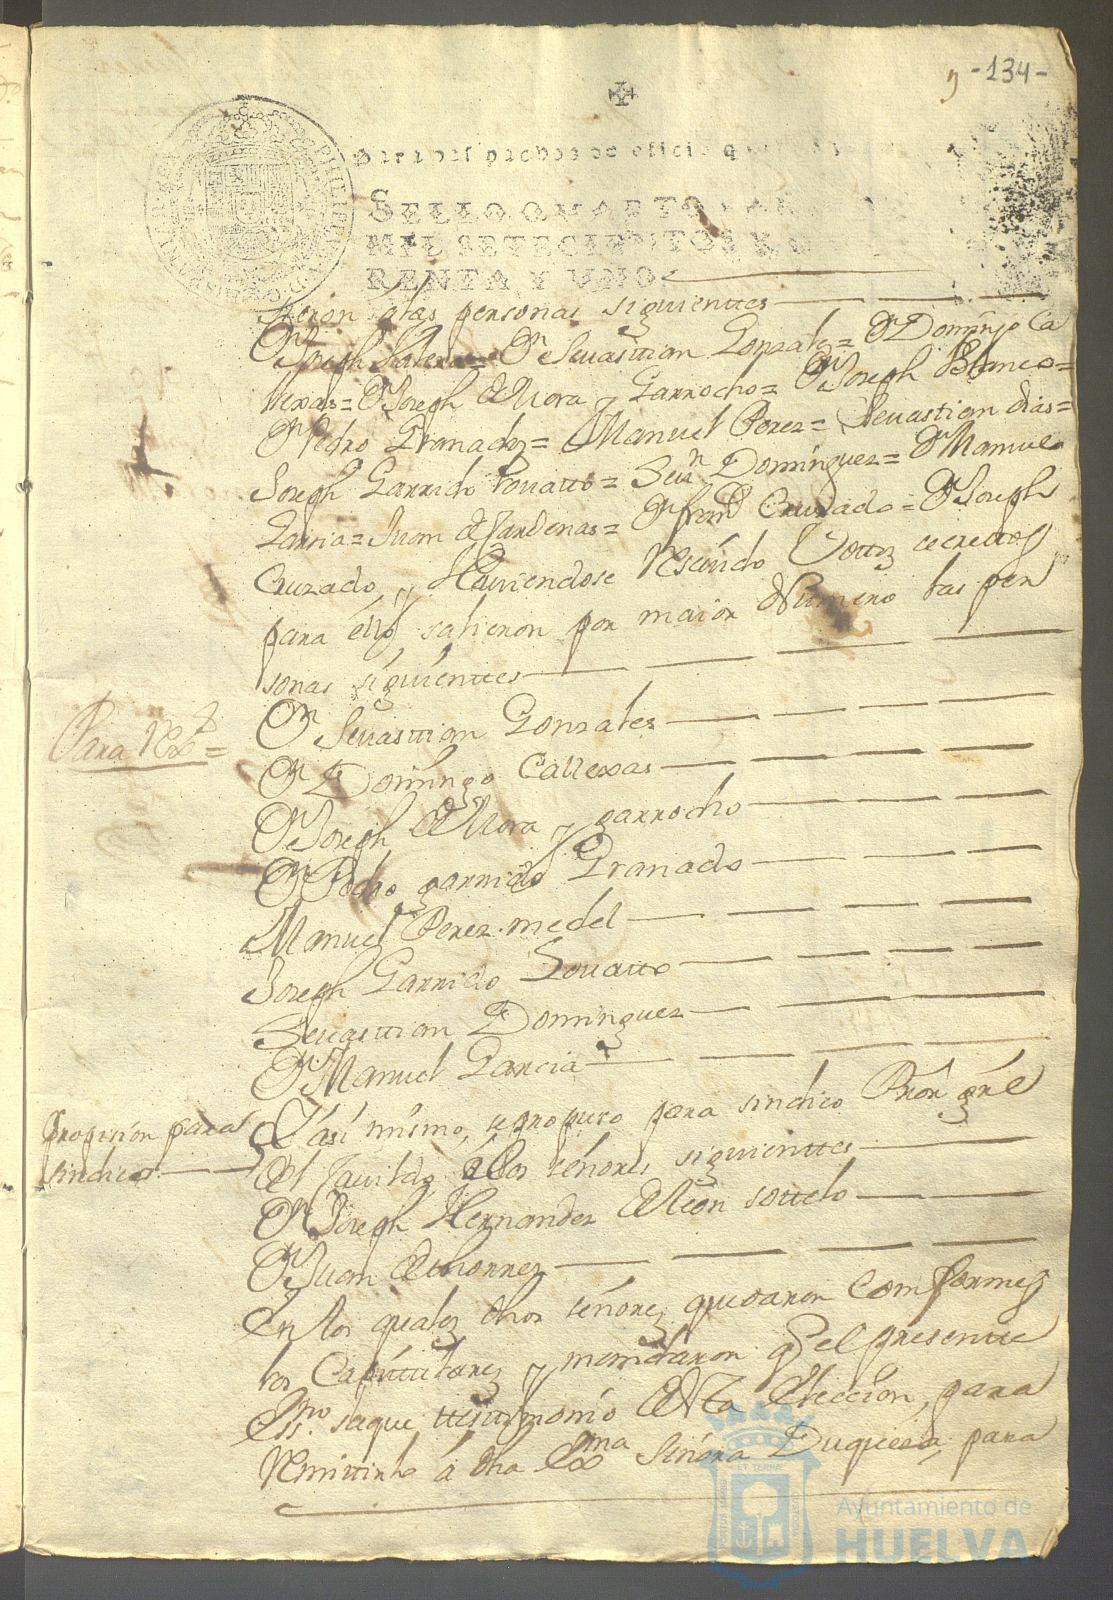 9 -134-
para despachos de oficio q
SELLO QVARTO, AÑO
MIL SETECIENTOS Y
RENTA Y VNO
alas personas siguienttes
Dn Joseph = Dn Sevasttian Gonzales = Dn Domingo Ca
llexas = Dn Joseph de Mora y Garrocho = Dn Joseph Blanco =
Dn Pedro Granado = Manuel Perez = Sevastian Dias =
Joseph Garrido Lovatto = Sevn Dominguez = Dn Manuel
Garcia = Juan de Cardenas = Dn Franco Cruzado = Dn Joseph
Cruzado, y Haviendose Resevido Vottos secrettos
para ello salieron por maior Numero las per
sonas siguienttes
Para Rexs =
Dn Sevasttian Gonzales
Dn Domingo Callexas
Dn Joseph de Mora y garrocho
Dn Pedro garrido Granado
Manuel Perez medel
Joseph Garrido Lovatto
Sevasttian Dominguez
Dn Manuel Garcia
proposision para
sindico
Y asi mismo, se propuso para sindico Pror grl
del Cavildo a los señores siguienttes
Dn Joseph Hernandez de Leon Sottelo
Dn Juan de thorres
En los quales dhos señores quedaron Comformes
los Capittulares y mandaron q el presentte
Essno saque ttesttimonio de esta Eleccion, para
Remittirlo á dha Exma Señora Duquesa, para
Ayuntamiento de
HUELVA